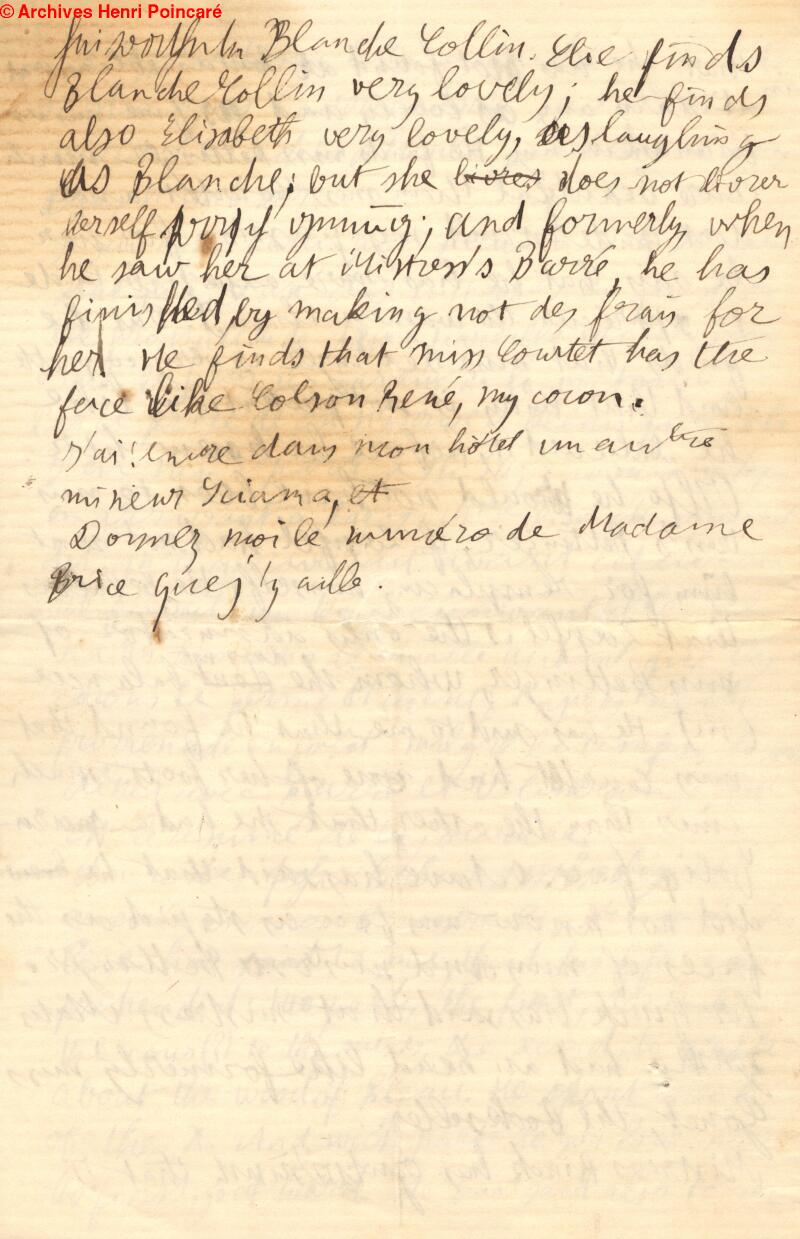 © Archives Henri Poincaré
Blanche Collin. He finds
Blanche Collin very lovely; he finds
also Elisabeth very lovely, as laughing
as Blanche; but she livres does not livrer
herself very ; and formerly, when
he saw her at Mistress's Barré, he has
finished by making not des frais for
her. He finds that miss Courtet has the
face like Colson René, my cocon.
J'ai encore dans mon hôtel un autre
mineur Sciama, et
Donnez moi le numéro de Madame
Brice que j'y aille.